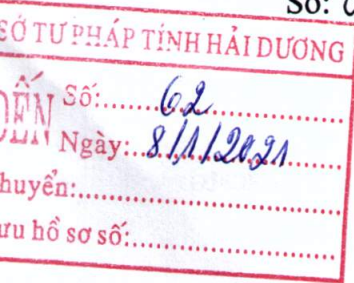 Số:
SỞ TƯ PHÁP TỈNH HẢI DƯƠNG
ĐẾN
Số:......62......
Ngày:..8/1/2021......
huyển:......
ưu hồ sơ số:......